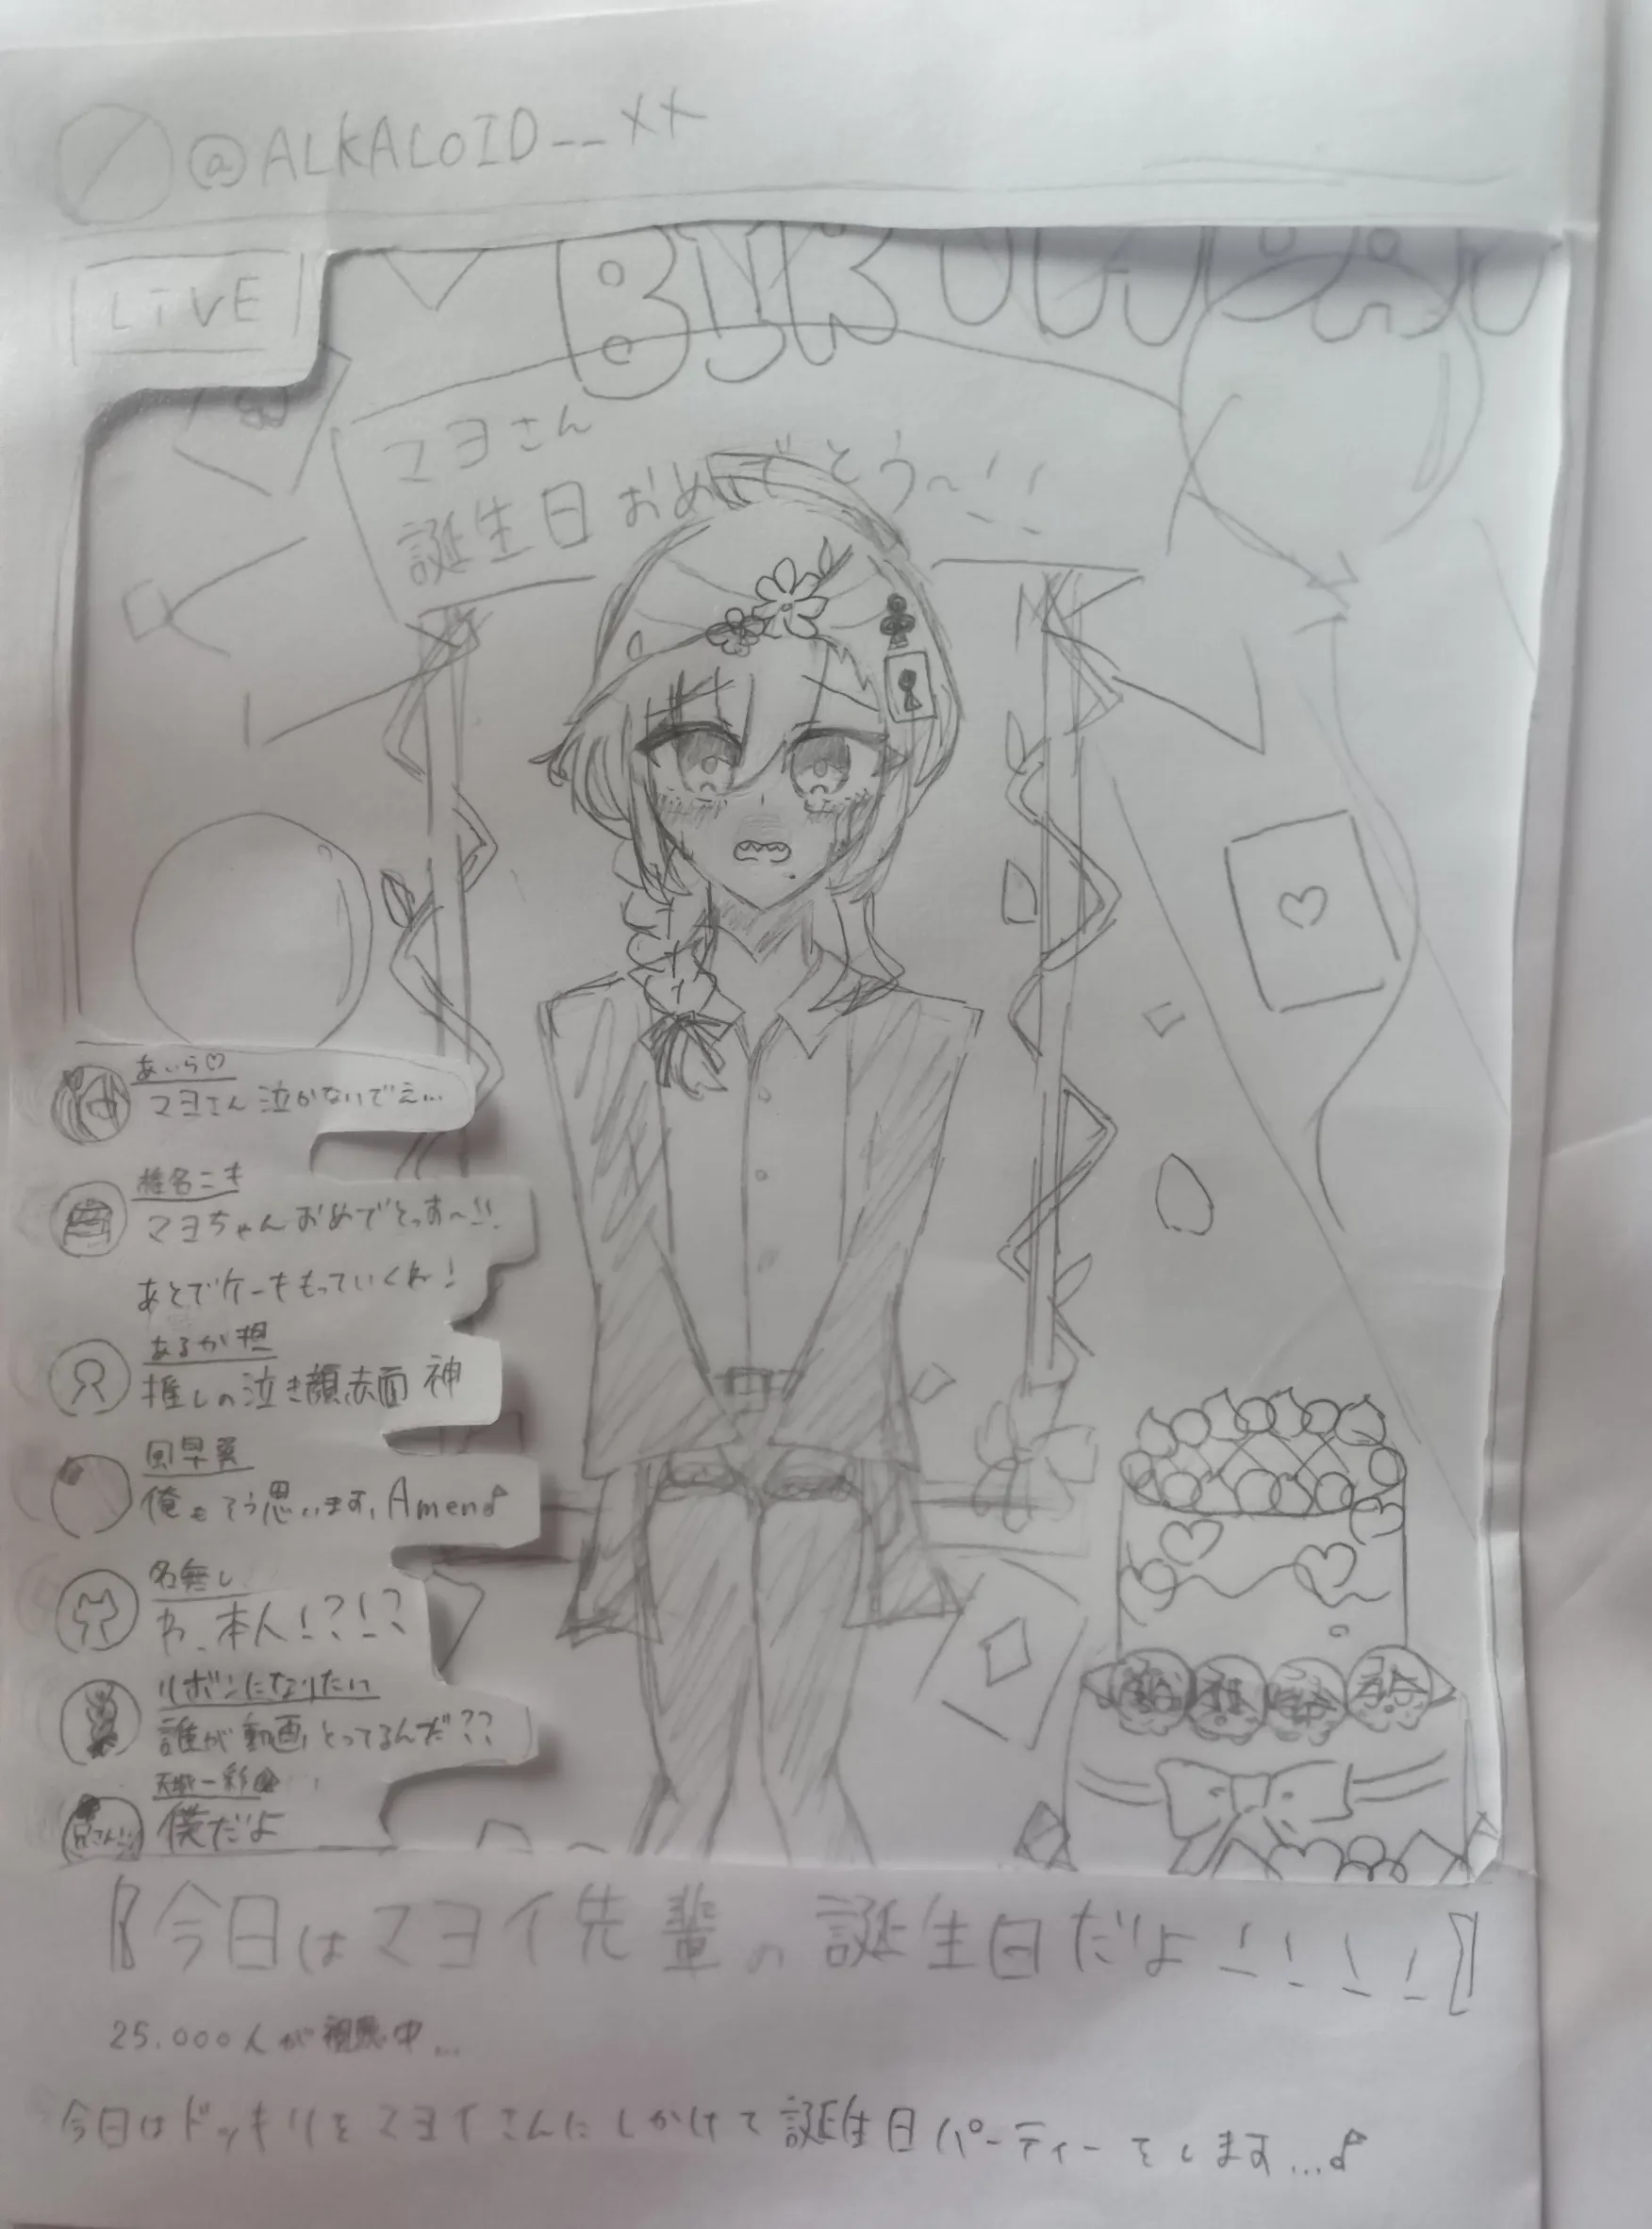 @ALKALOID__××
LIVE
マヨさん
誕生日おめでとう〜!!
あいら♡
マヨさん泣かないでえ...
椎名ニキ
マヨちゃんおめでとっす〜!!
あとでケーキもっていくね!
あるか担
推しの泣き顔赤面 神
風早巽
俺もそう思います, Amen♪
名無し
わ、本人!?!?
リボンになりたい
誰が動画とってるんだ??
天城一彩
兄さん!!
僕だよ
【今日はマヨイ先輩の誕生日だよ!!!!】
25.000人が視聴中...
今日はドッキリをマヨイさんにしかけて誕生日パーティーをします...♪